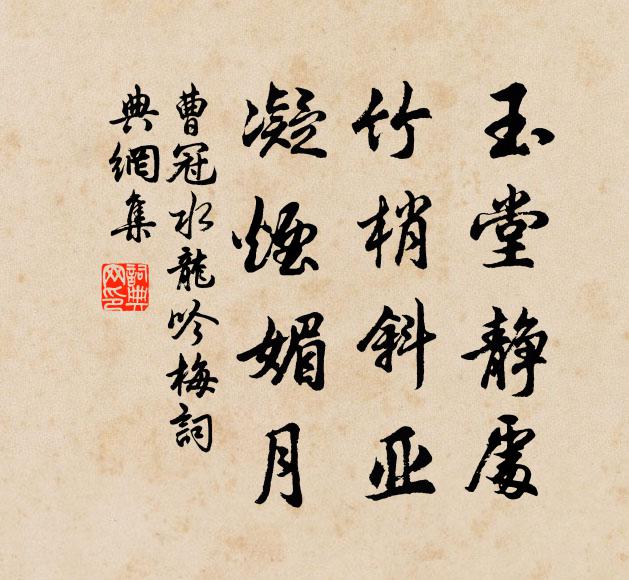 玉堂静處
竹梢斜亚
凝煙媚月
曹冠水龍吟梅詞
典網集
詞典網印